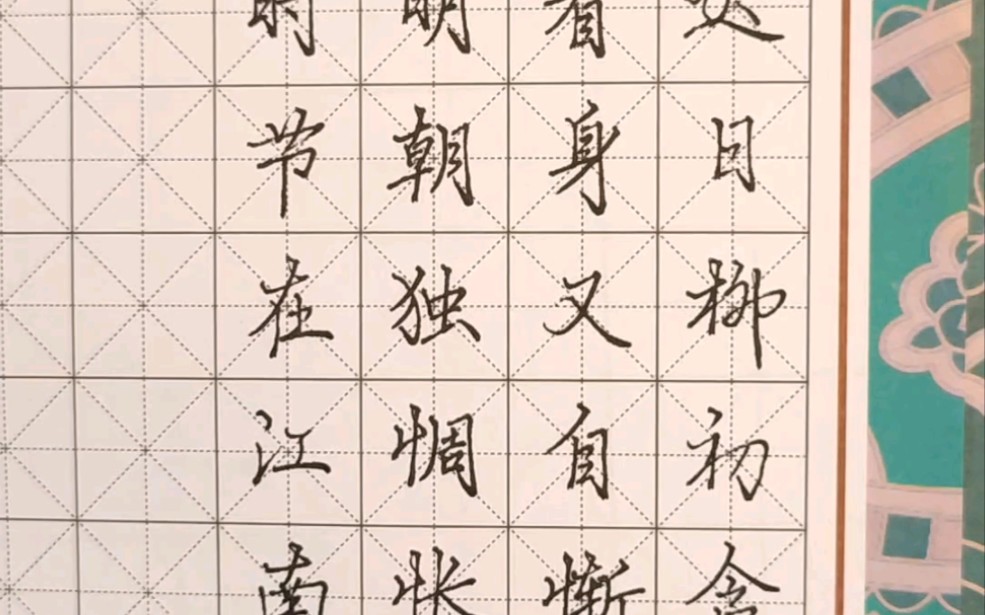 日柳初含
看身又自惭
明朝独惆怅
时节在江南